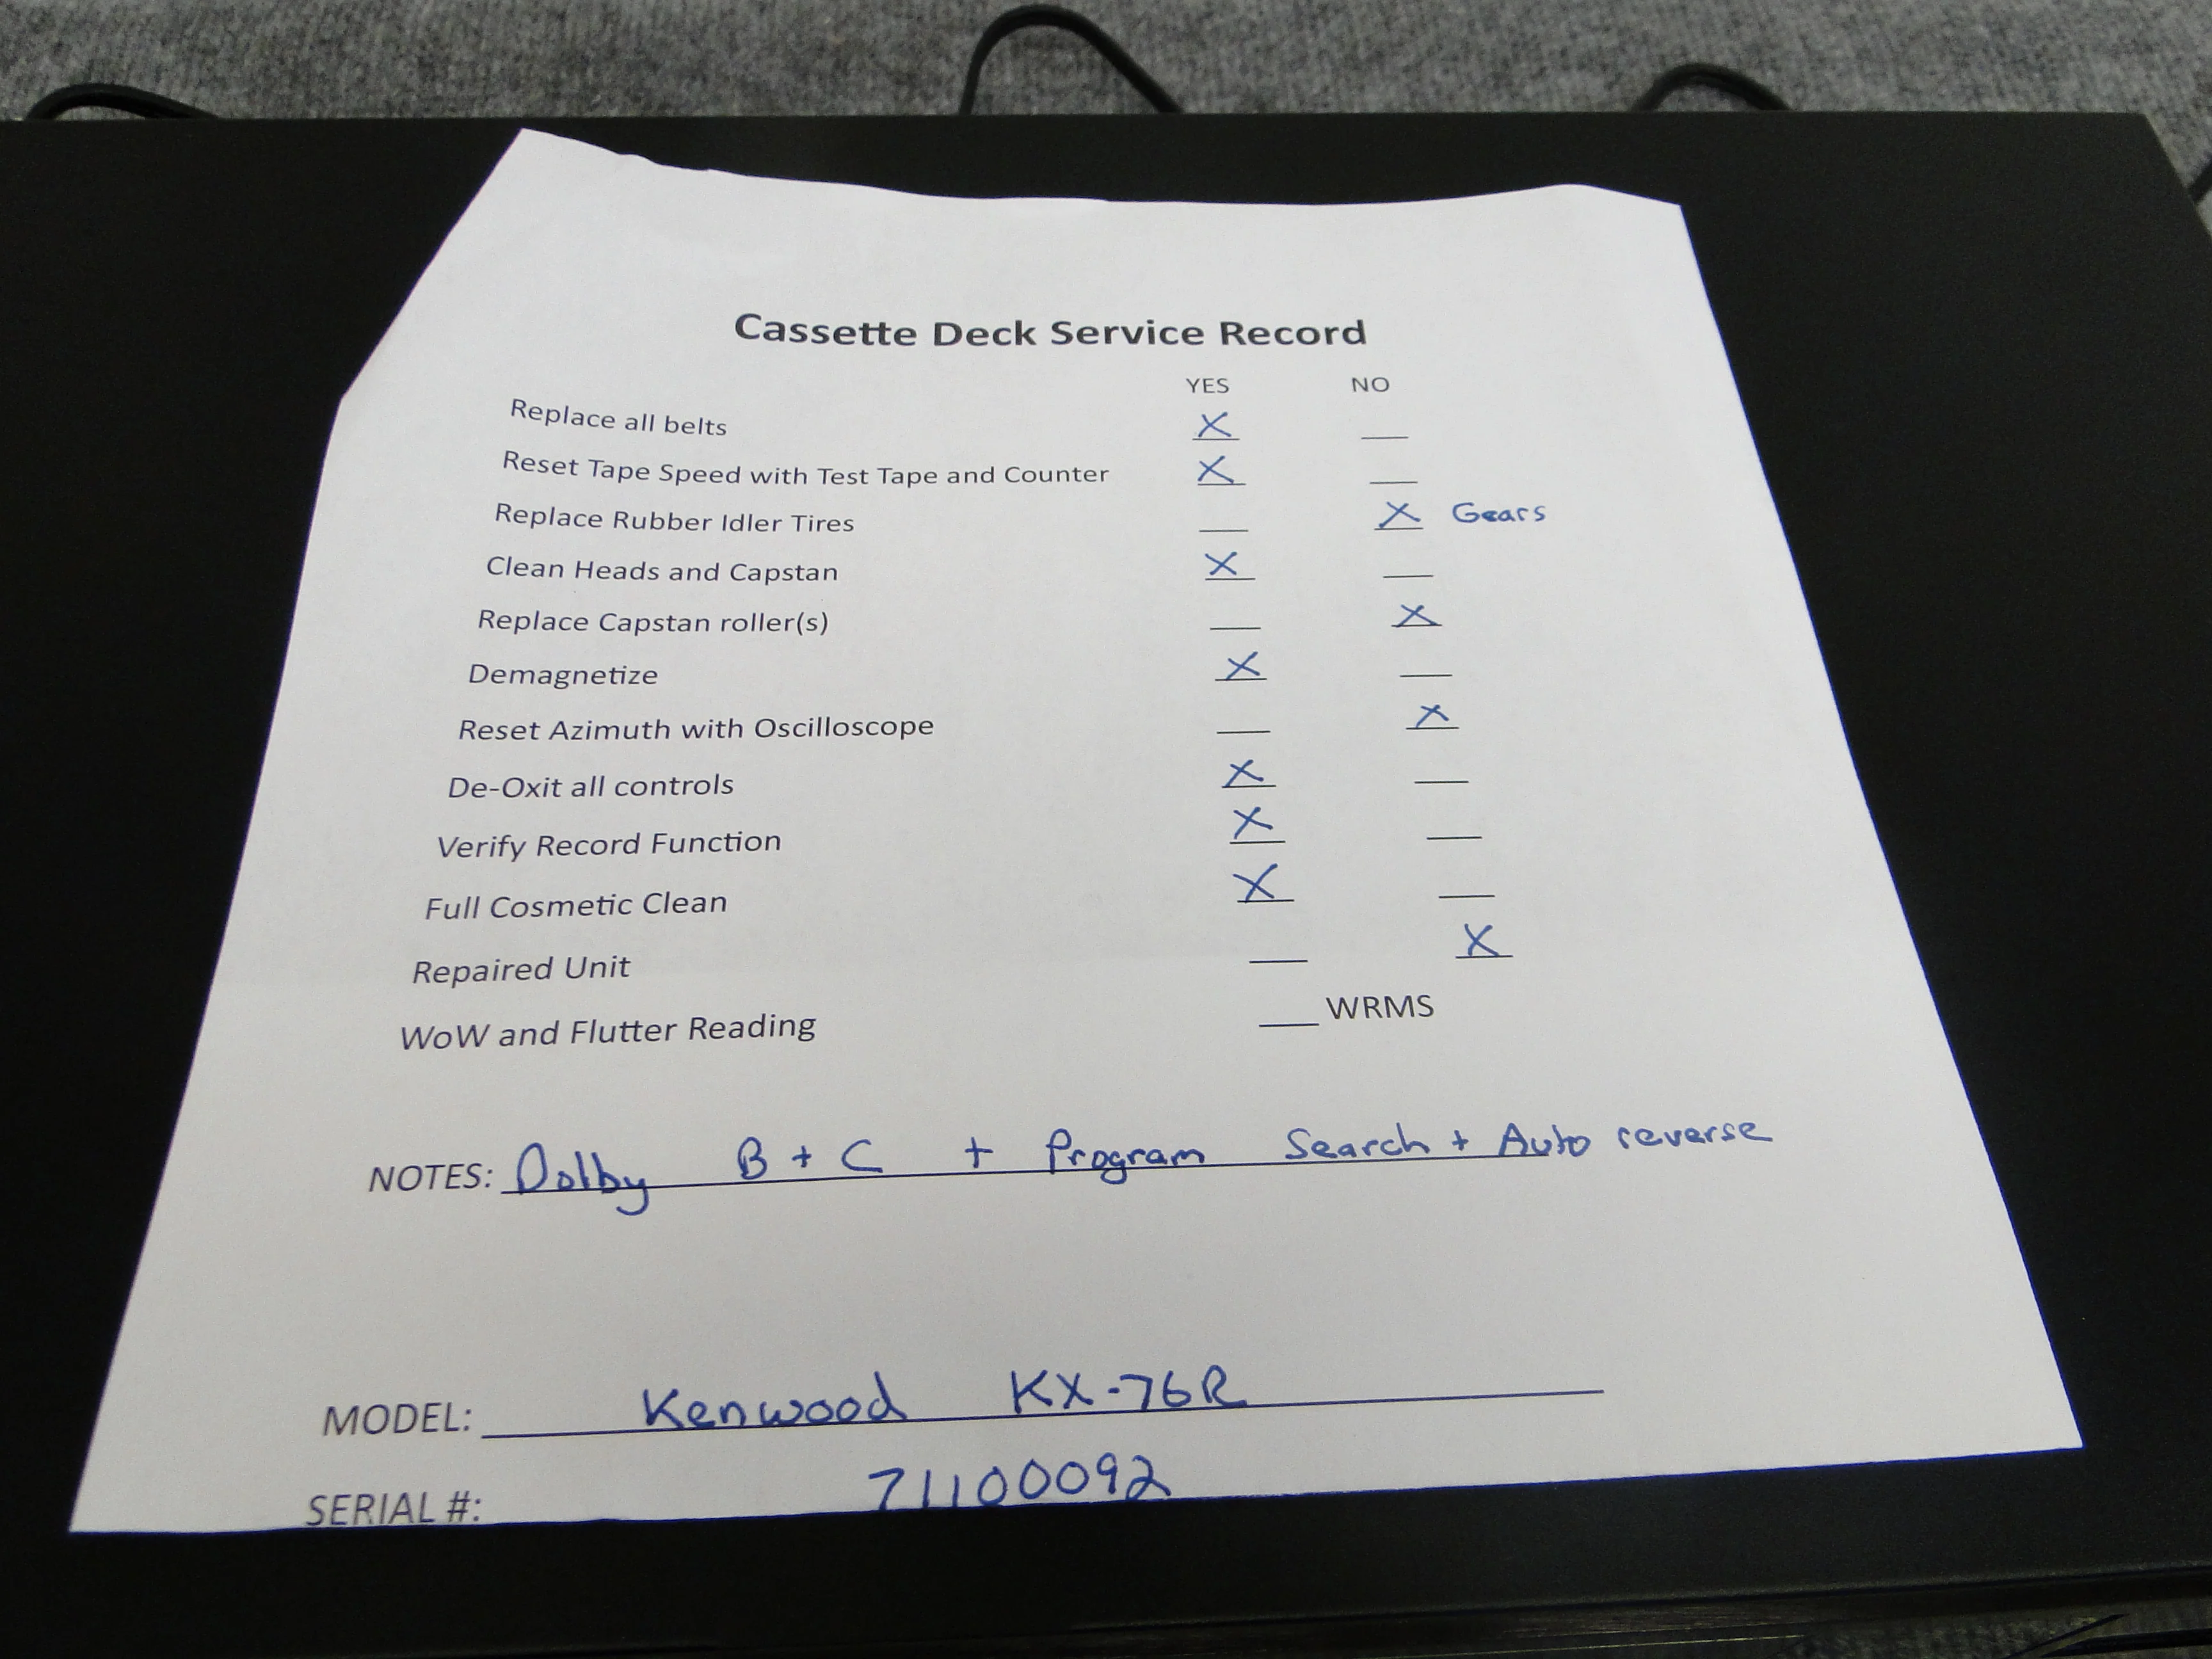 Cassette Deck Service Record
YES NO
Replace all belts X __
Reset Tape Speed with Test Tape and Counter X __
Replace Rubber Idler Tires __ X Gears
Clean Heads and Capstan X __
Replace Capstan roller(s) __ X
Demagnetize X __
Reset Azimuth with Oscilloscope __ X
De-Oxit all controls X __
Verify Record Function X __
Full Cosmetic Clean X __
Repaired Unit __ X
WoW and Flutter Reading __ WRMS
NOTES: Dolby B + C + Program Search + Auto reverse
MODEL: Kenwood KX-76R
SERIAL #: 71100092